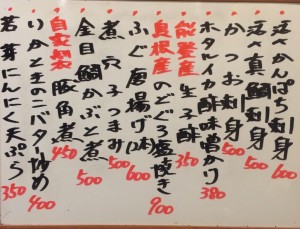 活〆かんぱち刺身 600
活〆真鯛刺身 500
かつお刺身 500
ホタルイカ酢味噌かけ 380
能登産生子酢 350
島根産のどぐろ塩焼き 900
ふぐ唐揚げ 600
煮穴子つまみ 500
金目鯛かぶと煮 500
自家製豚角煮 450
いかときのこバター炒め 400
若芽にんにく天ぷら 350